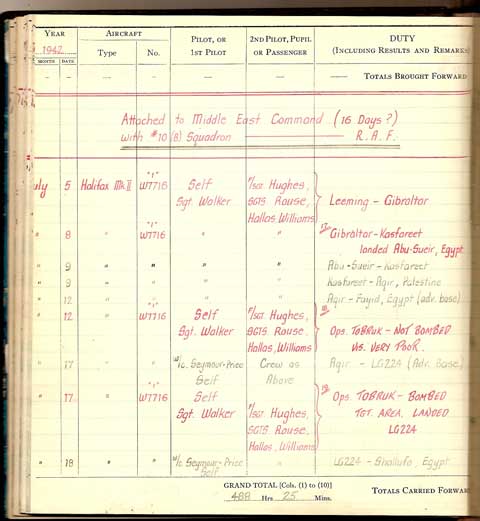 YEAR AIRCRAFT PILOT, OR 2ND PILOT, PUPIL DUTY
1942 Type No. 1ST PILOT OR PASSENGER (INCLUDING RESULTS AND REMARKS
MONTH DATE
— — — — — — —— TOTALS BROUGHT FORWARD
Attached to Middle East Command (16 Days?)
with #10 (B) Squadron ——— R.A.F.
"J"
uly 5 Halifax Mk II W7716 Self F/Sgt Hughes,
Sgt. Walker SGTS Rouse, Leeming - Gibraltar
Hallas, Williams
" 8 " W7716 " " 17. Gibraltar - Kasfareet
landed Abu-Sueir, Egypt
" 9 " " " " Abu-Sueir - Kasfareet
" 9 " " " " Kasfareet - Aqir, Palestine
" 12 " " " " Aqir - Fayid, Egypt (adv. base)
" 12 " W7716 Self F/Sgt Hughes, 18.
Sgt. Walker SGTS Rouse, Ops. TOBRUK - NOT BOMBED
Hallas, Williams VIS. VERY POOR.
" 17 " " W/C. Seymour-Price Crew as Aqir - LG224 (Adv. Base)
Self Above
" 17 " W7716 Self Ops. TOBRUK - BOMBED
Sgt. Walker F/Sgt Hughes, TGT. AREA. LANDED
SGTS Rouse, LG224
Hallas, Williams
" 18 " " W/C Seymour-Price " LG224 - Shallufa, Egypt
Self
GRAND TOTAL [Cols. (1) to (10)]
488 Hrs 25 Mins. TOTALS CARRIED FORWAR